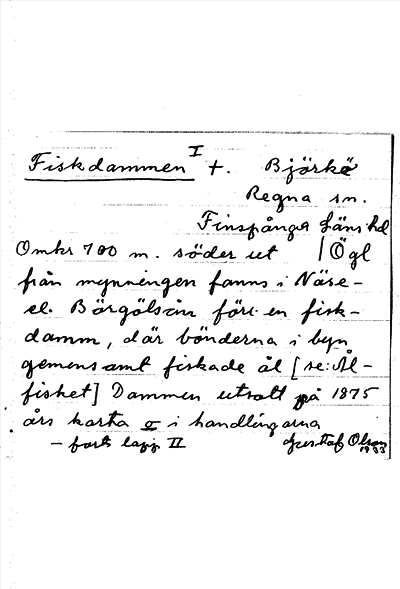 Fiskdammen I t. Björke
Regna sn.
Finspånga läns hd
Omkr 700 m. söder ut | Ögl
från mynningen fanns i Näse-
el. Börgölsån förr en fisk-
damm, där bönderna i byn
gemensamt fiskade ål [se: Ål-
fisket] Dammen utsatt på 1875
års karta o i handlingarna
– forts lapp II Gustaf Olson
1933